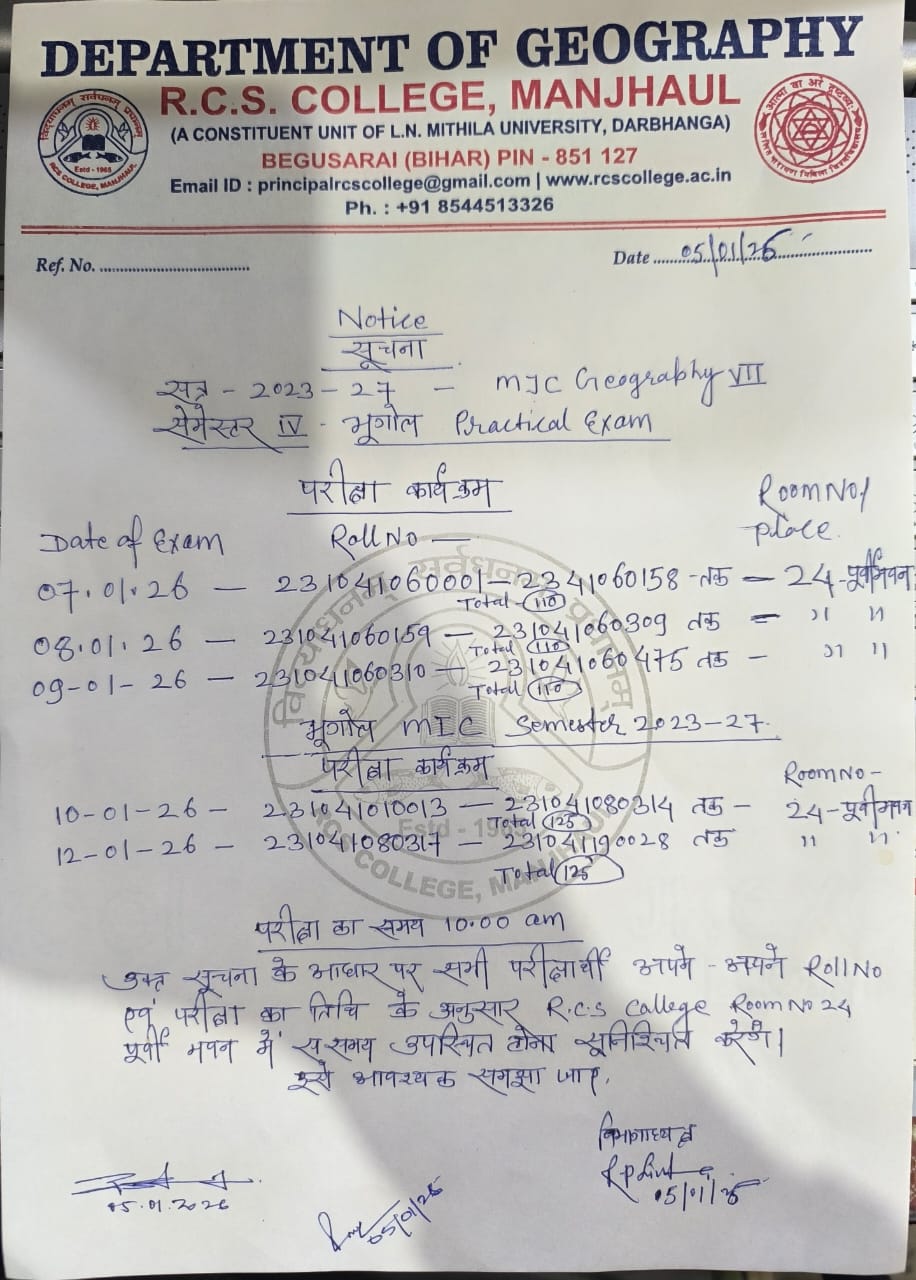 DEPARTMENT OF GEOGRAPHY
R.C.S. COLLEGE, MANJHAUL
(A CONSTITUENT UNIT OF L.N. MITHILA UNIVERSITY, DARBHANGA)
BEGUSARAI (BIHAR) PIN - 851 127
Email ID : principalrcscollege@gmail.com | www.rcscollege.ac.in
Ph. : +91 8544513326
Ref. No. ............ Date ..... 05/01/26 .....
Notice
सूचना
सत्र - 2023-27 - MJC Geography VII
सेमेस्टर IV - भूगोल Practical Exam
परीक्षा कार्यक्रम
Date of Exam Roll No — Room No/ place.
07.01.26 — 231041060001 — 2341060158 - तक — 24 - पूर्वी भवन
Total - 110
08.01.26 — 231041060159 — 231041060309 तक — " "
Total 110
09-01-26 — 231041060310 — 231041060475 तक — " "
Total 110
भूगोल MIC Semester 2023-27.
परीक्षा कार्यक्रम
Room No -
10-01-26 - 231041010013 — 231041080314 तक - 24-पूर्वी भवन
Total 125
12-01-26 - 231041080317 — 231041190028 तक " "
Total 125
परीक्षा का समय 10.00 am
उक्त सूचना के आधार पर सभी परीक्षार्थी अपने - अपने Roll No
एवं परीक्षा का तिथि के अनुसार R.C.S College Room No 24
पूर्वी भवन में ससमय उपस्थित होना सुनिश्चित करेंगे।
इसे आवश्यक समझा जाए.
विभागाध्यक्ष
05/01/26
05.01.2026
05/01/26
विद्याधनम् सर्वधनम् प्रधानम्
Estd - 1965
RCS COLLEGE, MANJHAUL